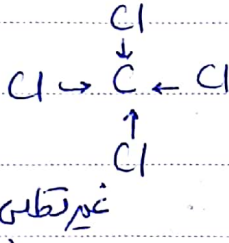 Cl
↓
Cl → C ← Cl
↑
Cl
غير قطبي